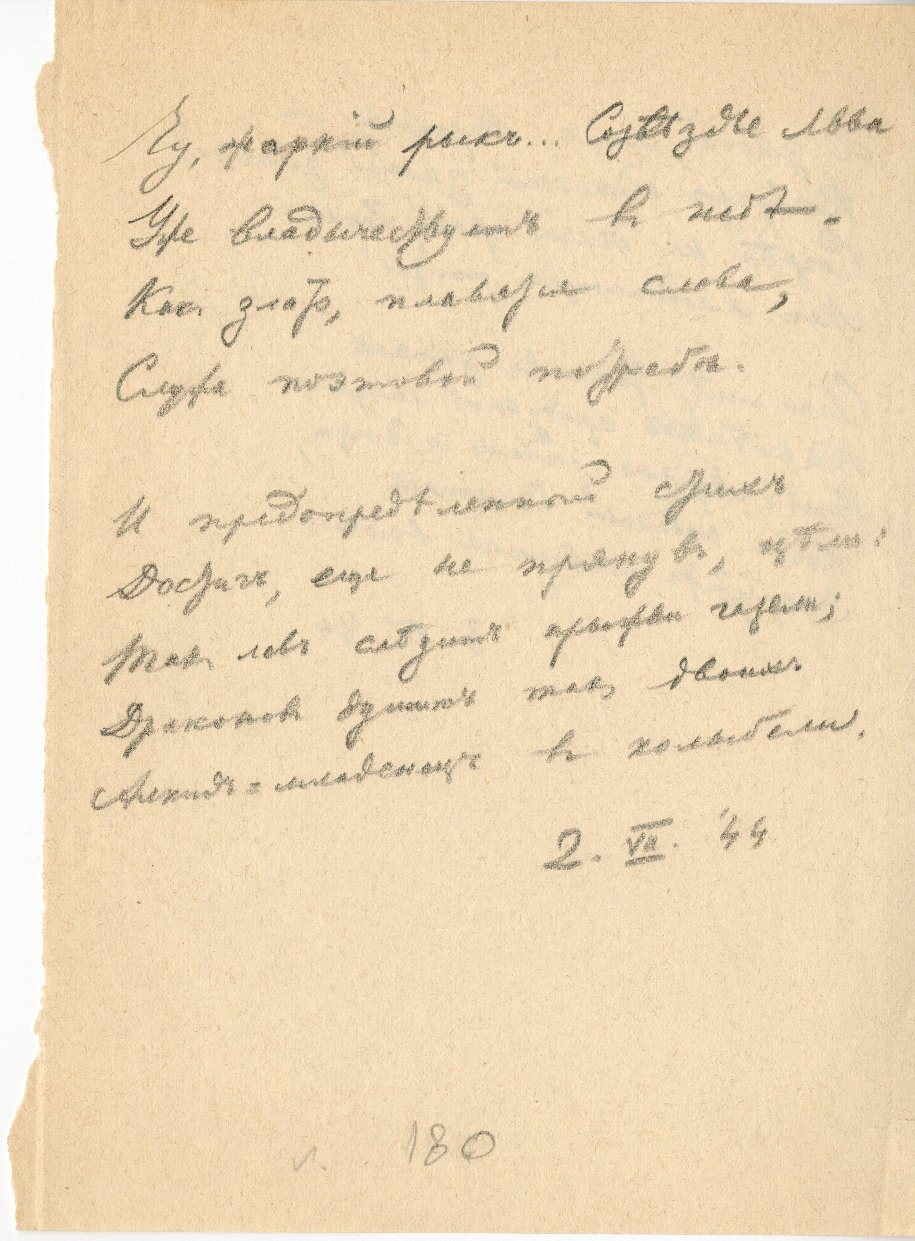 Чу, жаркій рыкъ... Созвѣздье Льва
Уже владычествуетъ в небѣ.
Как злато, плавятся слова,
Служа поэтовой потребѣ.
И предопредѣленный стихъ
Достигъ, еще не прянувъ, цѣли:
Такъ левъ слѣдитъ прыжки газели;
Драконовъ душитъ такъ двоихъ
Алкидъ=младенецъ въ колыбели.
2. VII. '44
л. 180